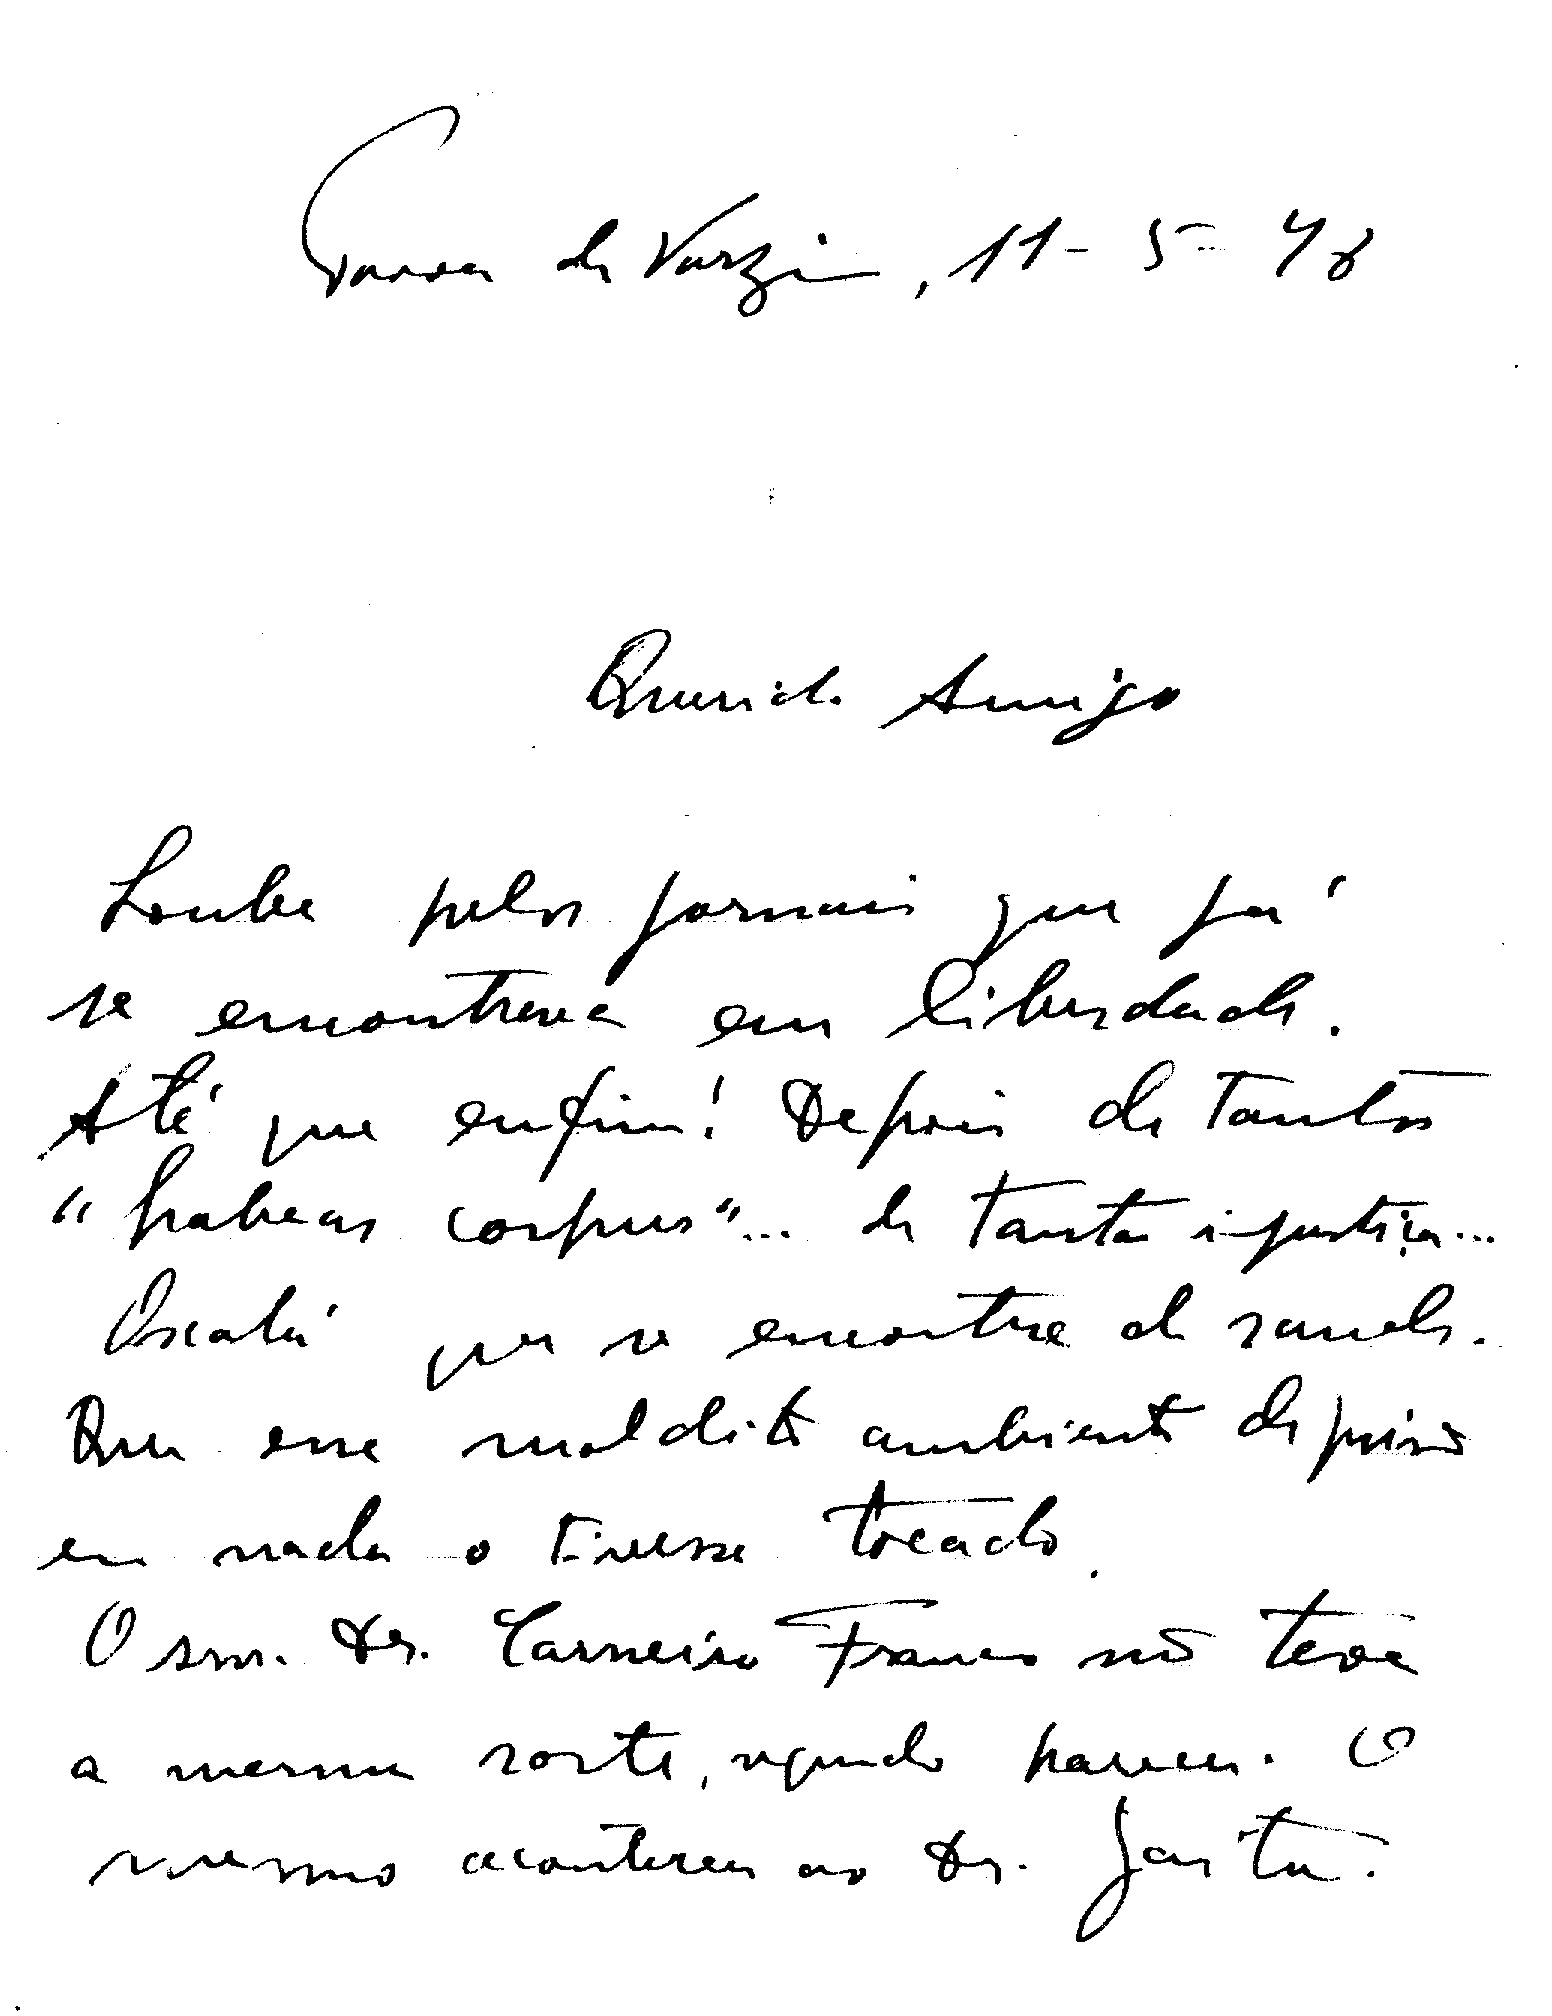 Povoa de Varzim, 11-5-48
Querido Amigo
Soube pelos jornais que já
se encontrava em liberdade.
Até que enfim! Depois de tantos
"habeas corpus"... de tanta injustiça...
Oxalá que se encontre de saude.
Que esse maldito ambiente de prisão
em nada o tivesse tocado.
O snr. Dr. Carneiro Franco não teve
a mesma sorte, segundo parece. O
mesmo aconteceu ao Dr.